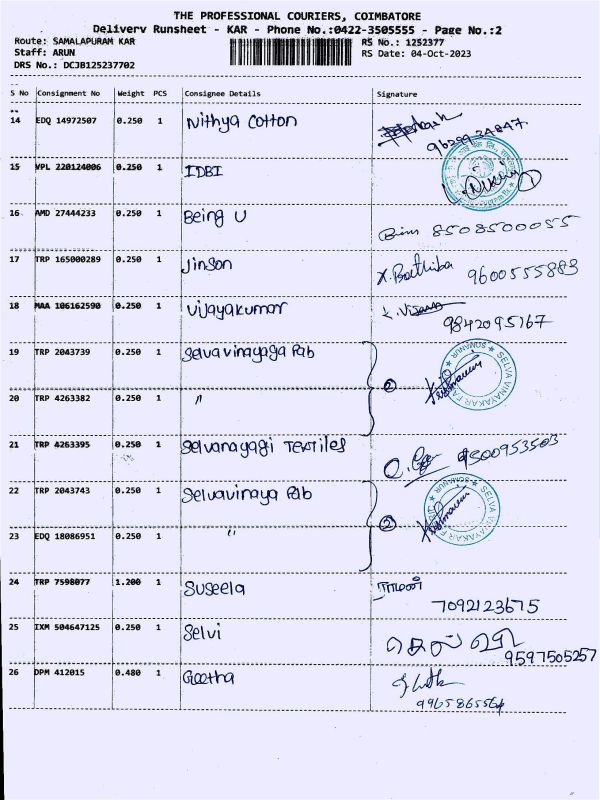 THE PROFESSIONAL COURIERS, COIMBATORE
Delivery Runsheet - KAR - Phone No.:0422-3505555 - Page No.:2
Route: SAMALAPURAM KAR RS No.: 1252377
Staff: ARUN RS Date: 04-Oct-2023
DRS No.: DCJB125237702
S No Consignment No Weight PCS Consignee Details Signature
14 EDQ 14972507 0.250 1 Nithya Cotton
9629924847
15 VPL 220124006 0.250 1 IDBI
16 AMD 27444233 0.250 1 Being U
8508500055
17 TRP 165000289 0.250 1 Jinson 9600555883
18 MAA 106162590 0.250 1 Vijayakumar
9842095167
19 TRP 2043739 0.250 1 Selvavinayaga Fab ②
20 TRP 4263382 0.250 1 "
SELVA VINAYAKAR FABRIC ★ SOMANUR ★
21 TRP 4263395 0.250 1 Selvanayagi Textiles 9500953503
22 TRP 2043743 0.250 1 Selvavinaya Fab ②
23 EDQ 18086951 0.250 1 "
SELVA VINAYAKAR FABRIC ★ SOMANUR ★
24 TRP 7598077 1.200 1 Suseela ராமன்
7092123675
25 IXM 504647125 0.250 1 Selvi
9597505257
26 DPM 412015 0.480 1 Geetha